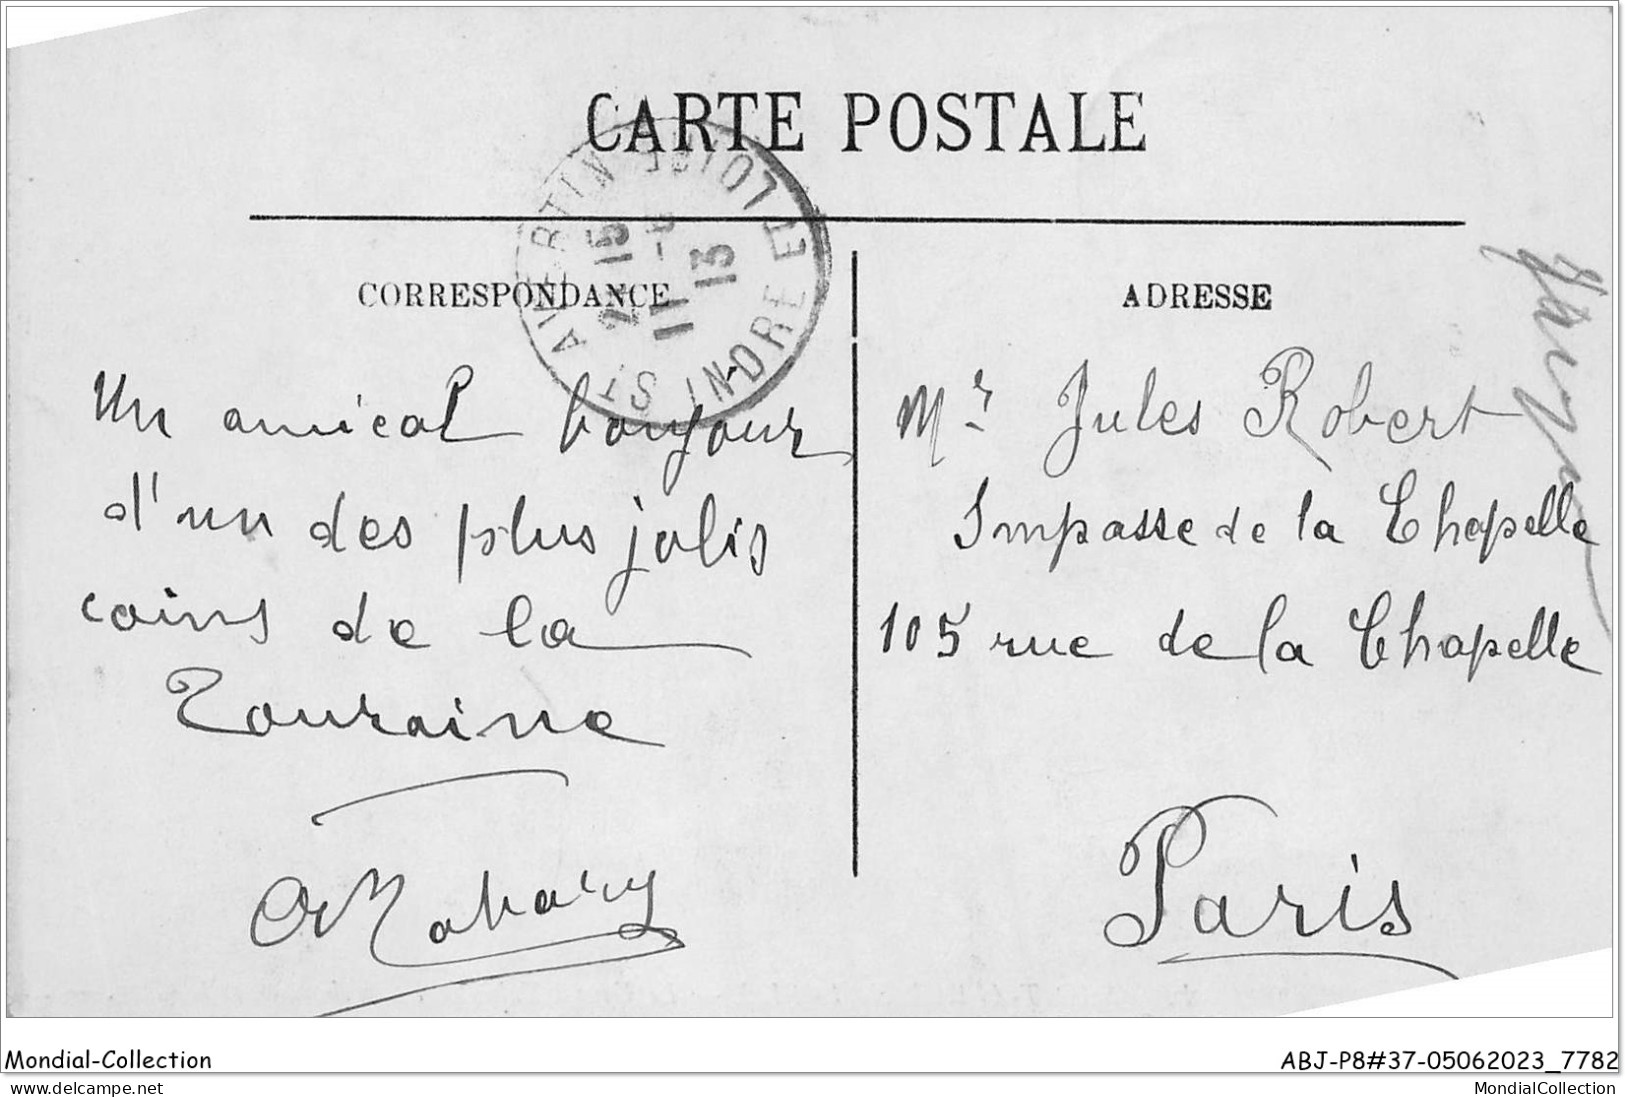 CARTE POSTALE
ST AVERTIN INDRE ET LOIRE
15
11
13
CORRESPONDANCE
ADRESSE
Un amical bonjour
d'un des plus jolis
coins de la
Touraine
Mr. Jules Robert
Impasse de la Chapelle
105 rue de la Chapelle
Paris
Mondial-Collection
ABJ-P8#37-05062023_7782
www.delcampe.net
MondialCollection